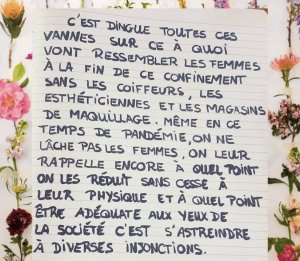 C'EST DINGUE TOUTES CES
VANNES SUR CE À QUOI
VONT RESSEMBLER LES FEMMES
À LA FIN DE CE CONFINEMENT
SANS LES COIFFEURS, LES
ESTHÉTICIENNES ET LES MAGASINS
DE MAQUILLAGE. MÊME EN CE
TEMPS DE PANDÉMIE, ON NE
LÂCHE PAS LES FEMMES, ON LEUR
RAPPELLE ENCORE À QUEL POINT
ON LES RÉDUIT SANS CESSE À
LEUR PHYSIQUE ET À QUEL POINT
ÊTRE ADÉQUATE AUX YEUX DE
LA SOCIÉTÉ C'EST S'ASTREINDRE
À DIVERSES INJONCTIONS.